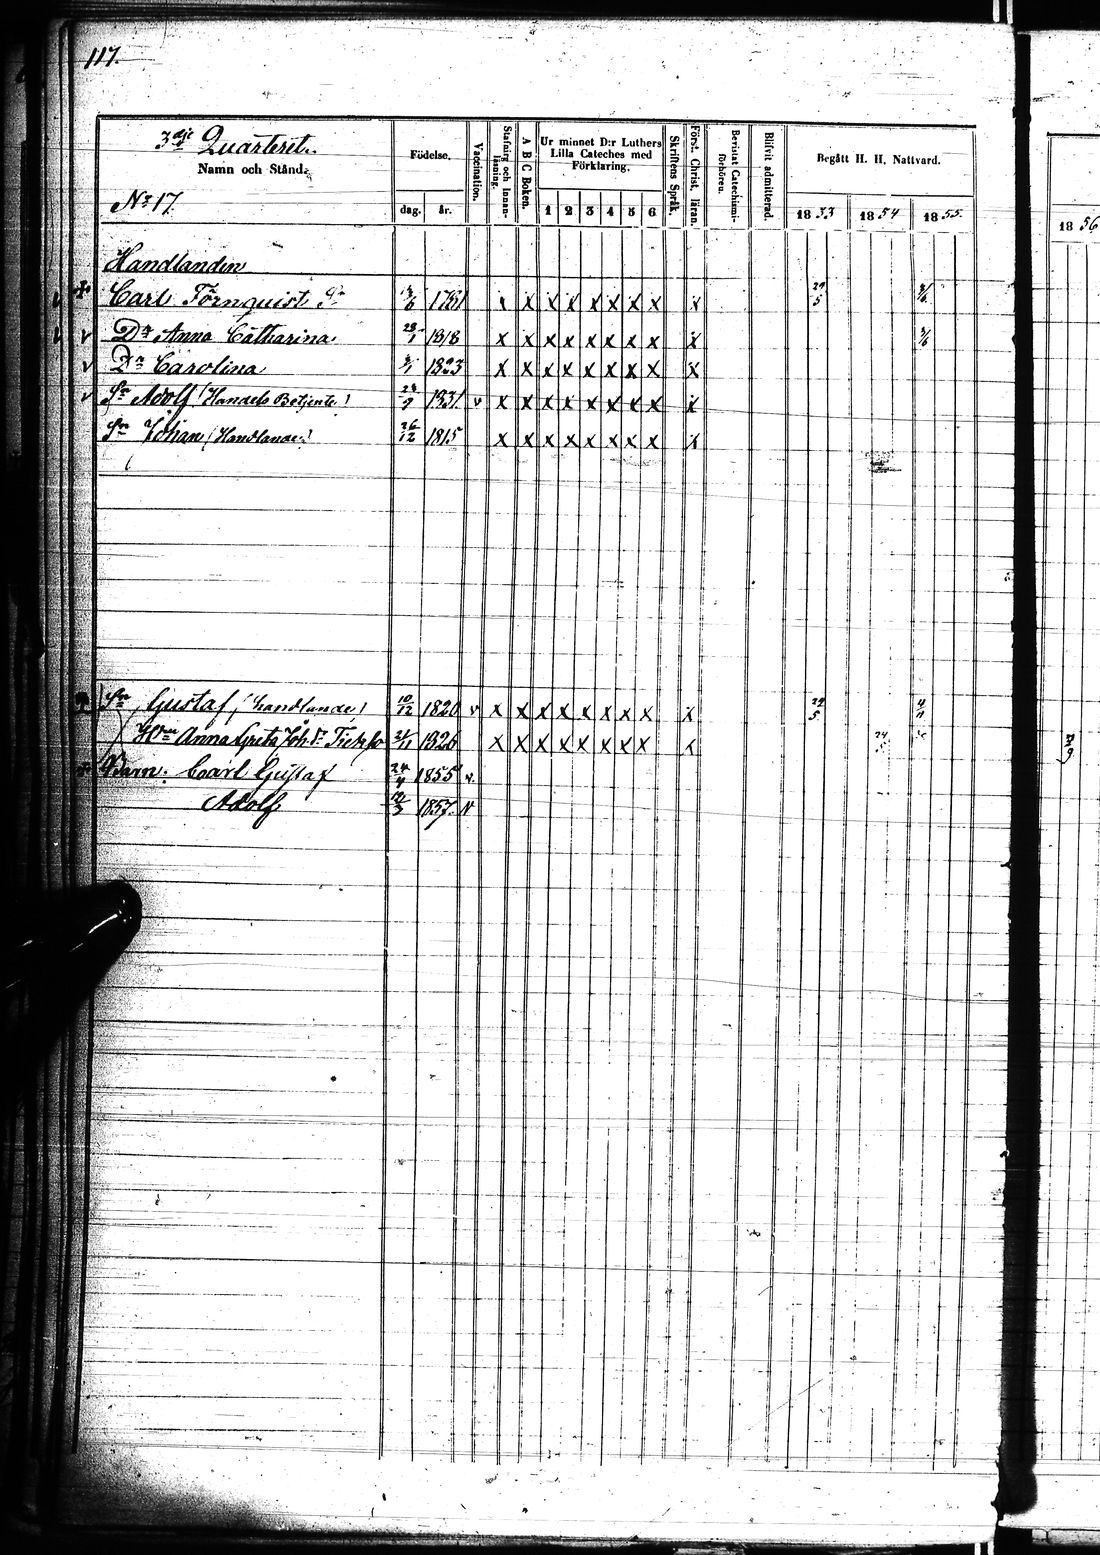 117.
3dje Quarteret.
Namn och Stånd.
No 17.
Födelse.
dag. år.
Vaccination.
Stafning och Innanläsning.
A B C Boken.
Ur minnet D:r Luthers Lilla Cateches med Förklaring.
1 2 3 4 5 6
Skriftens Språk.
Först. Christ. läran.
Bevistat Catechismi-förhören.
Blifvit admitterad.
Begått H. H. Nattvard.
1853 1854 1855
1856
Handlanden
Carl Törnquist Sr x x x x x x x x x 29/5
Dr Anna Catharina 28/1 1818 x x x x x x x x x
Dr Carolina 1823 x x x x x x x x x
Sn Adolf (Handels Betjente) 28/9 1831 v x x x x x x x x x
Sn Johan (Handlande) 26/12 1815 x x x x x x x x x
Sn Gustaf (handlande) 10/12 1820 v x x x x x x x x x 29/5 4/11
Anna Greta Joh.dr 21/11 1826 x x x x x x x x x
Barn: Carl Gustaf 24/4 1855 v.
Adolf 12/3 1857. v